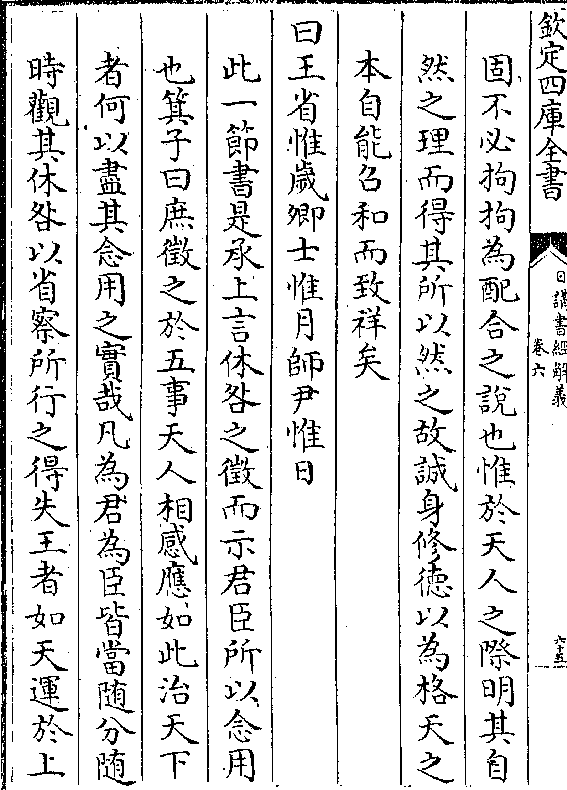 欽定四庫全書
日講書經解義
卷六
六十五
固不必拘拘為配合之說也惟於天人之際明其自
然之理而得其所以然之故誠身修德以為格天之
本自能召和而致祥矣
曰王省惟歲卿士惟月師尹惟日
此一節書是承上言休咎之徵而示君臣所以念用
也箕子曰庶徵之於五事天人相感應如此治天下
者何以盡其念用之實哉凡為君為臣皆當隨分隨
時觀其休咎以省察所行之得失王者如天運於上